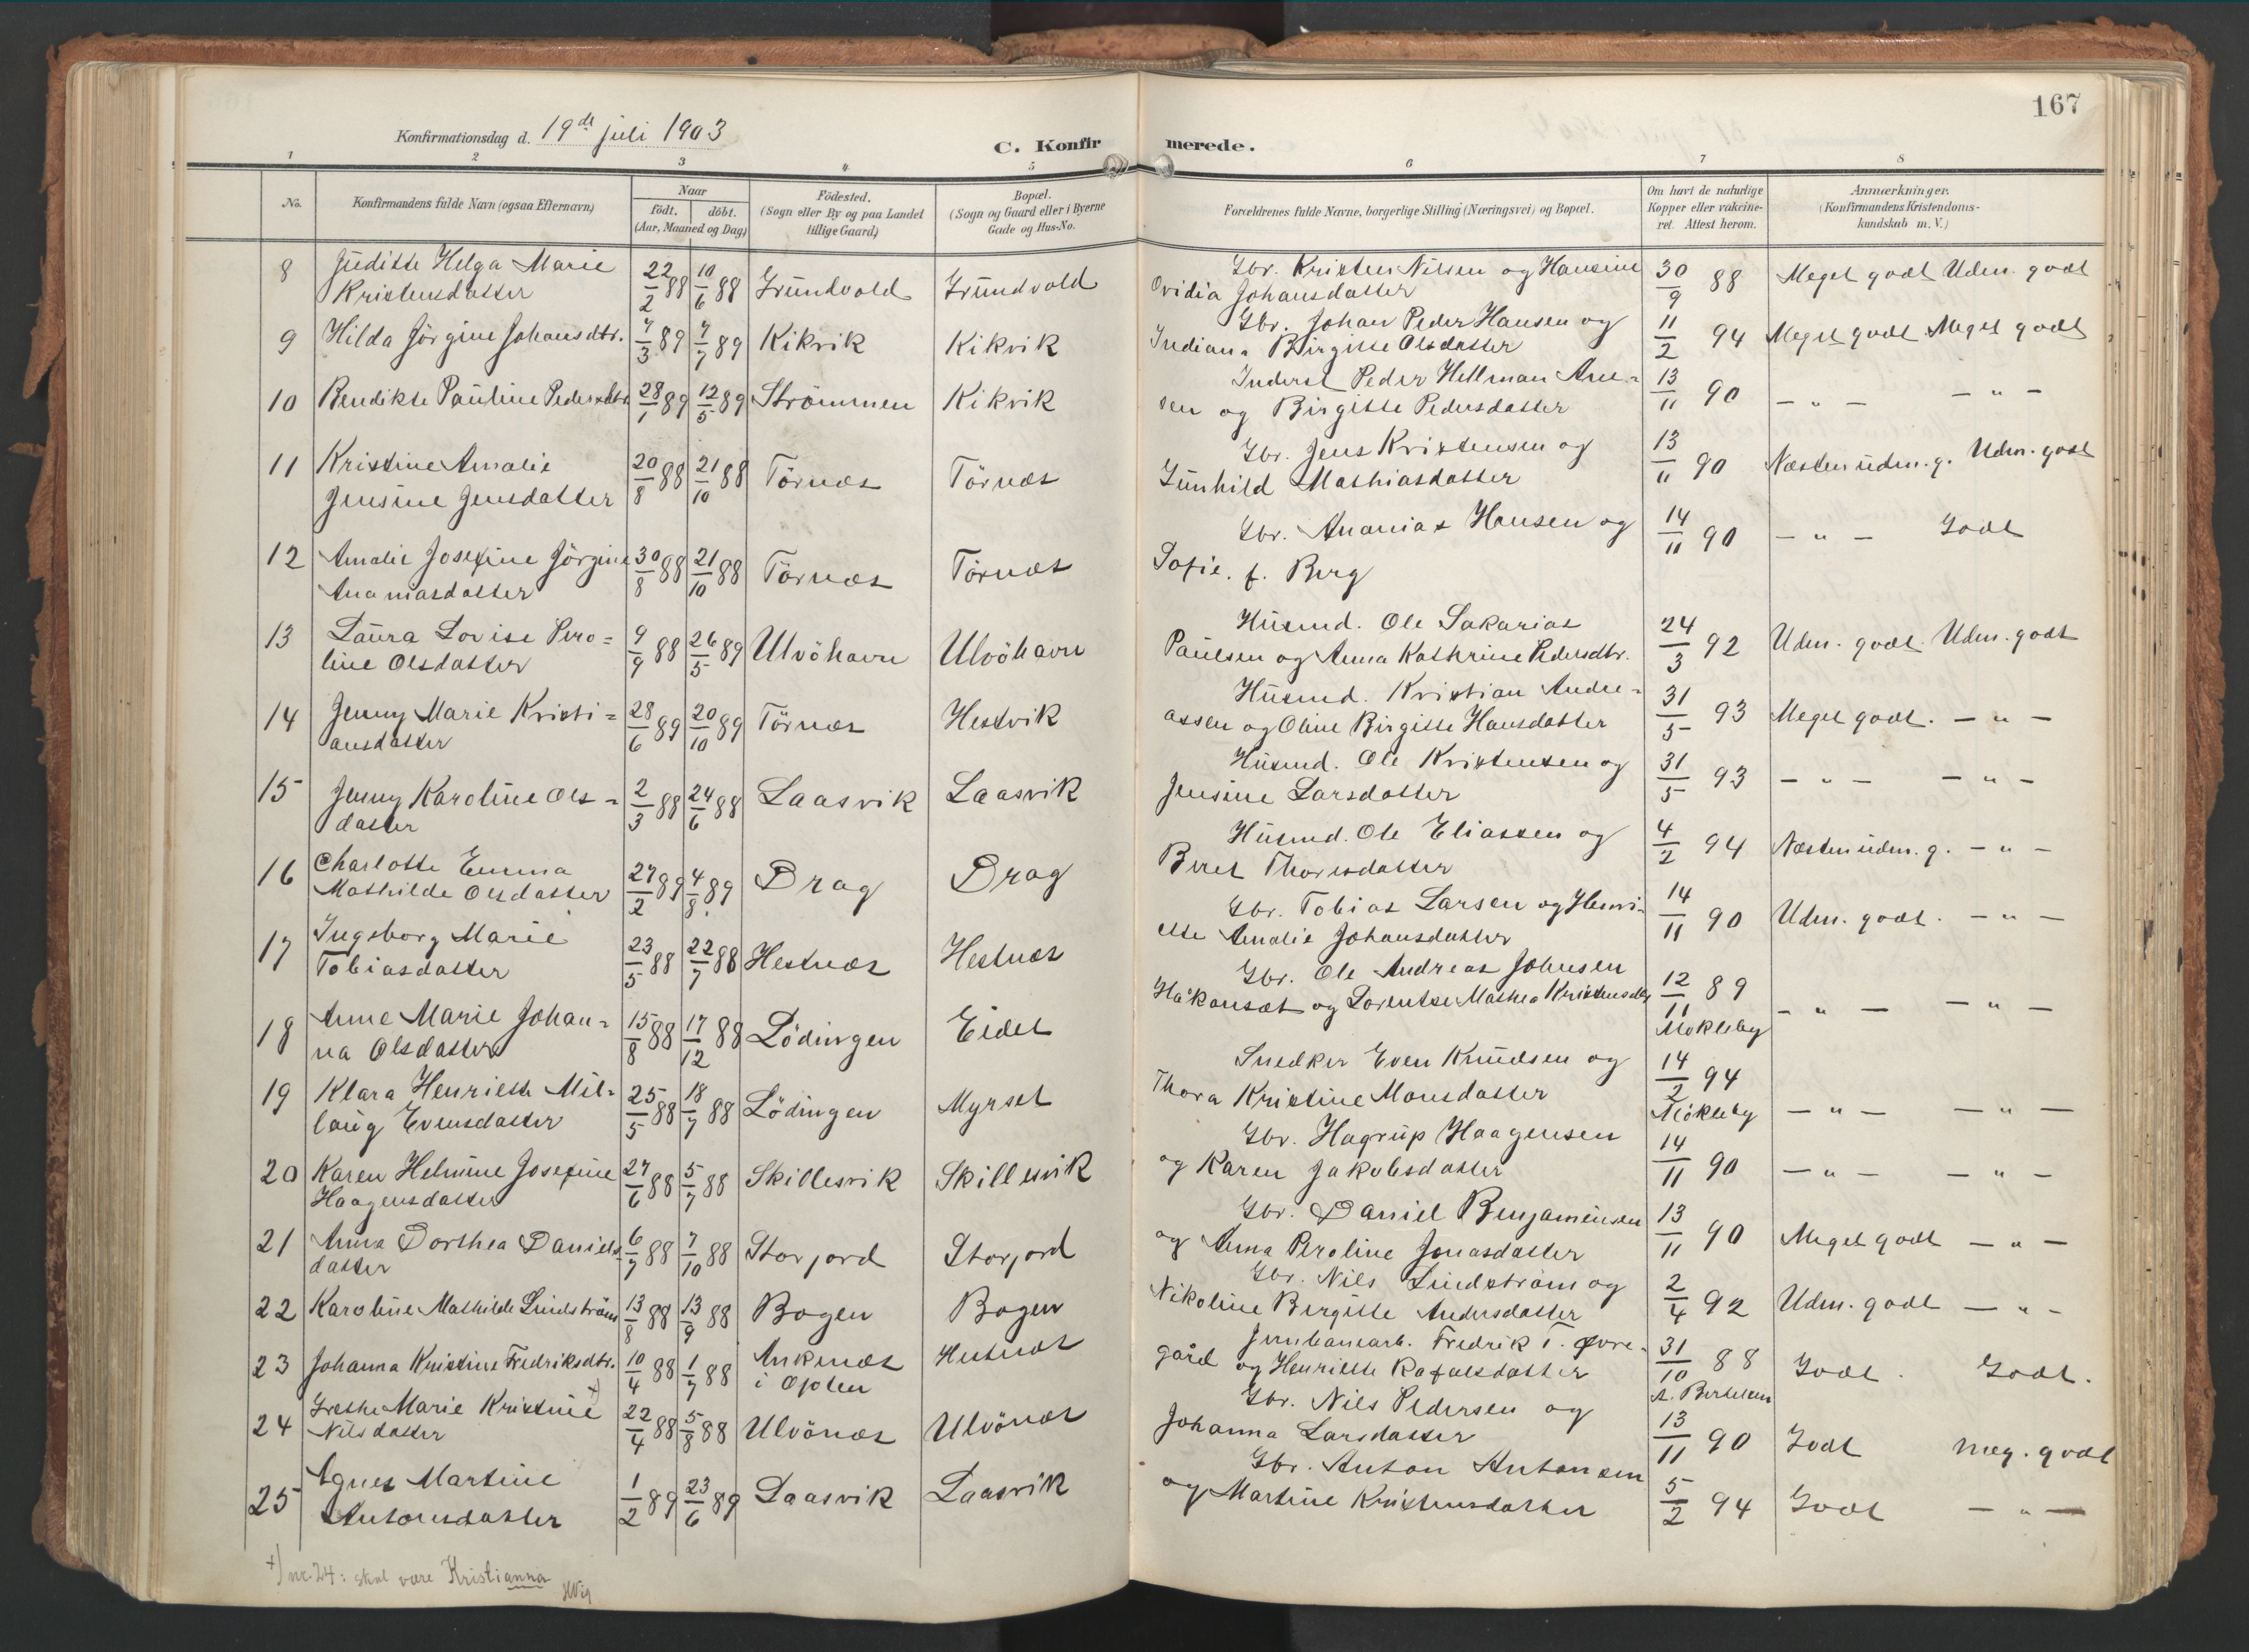 167
Konfirmationsdag d. 19de juli 1903
C. Konfirmerede.
1 2 3 4 5 6 7 8
No.
Konfirmandens fulde Navn (ogsaa Efternavn)
Naar
födt. döbt.
(Aar, Maaned og Dag)
Födested.
(Sogn eller By og paa Landet
tillige Gaard)
Bopæl.
(Sogn og Gaard eller i Byerne
Gade og Hus-No.
Forældrenes fulde Navne, borgerlige Stilling (Næringsvei) og Bopæl.
Om havt de naturlige
Kopper eller vakcine-
ret. Attest herom.
Anmærkninger.
(Konfirmandens Kristendoms-
kundskab m. V.)
8 Juditte Helga Marie 22/2 88 10/6 88 Grundvold Grundvold Gbr. Kristen Nilsen og Hansine 30/9 88 Meget godt Udm. godt
Kristensdatter Ovidia Johansdatter
9 Hilda Jörgine Johansdtr. 4/3 89 7/7 89 Kikvik Kikvik Gbr. Johan Peder Hansen og 11/2 94 Meget godt Meget godt
Indiana Birgitte Olsdatter
10 Bendikte Pauline Pedersdtr 28/1 89 12/5 89 Strömmen Kikvik Inderst Peder Hellman Arne- 13/11 90 — " — — " —
sen og Birgitte Pedersdatter
11 Kristine Amalie 20/8 88 21/10 88 Törnæs Törnæs Gbr. Jens Kristensen og 13/11 90 Næsten udm. g. Udm. godt
Jensine Jensdatter Gunhild Mathiasdatter
12 Amalie Josefine Jörgine 30/8 88 21/10 88 Törnæs Törnæs Gbr. Ananias Hansen og 14/11 90 — " — Godt
Ananiasdatter Sofie. f. Berg
13 Laura Lovise Pero= 9/9 88 26/5 89 Ulvöhavn Ulvöhavn Husmd. Ole Sakarias 24/3 92 Udm. godt. Udm. godt
line Olsdatter Paulsen og Anna Kathrine Pedersdtr.
14 Jenny Marie Kristi= 28/6 89 20/10 89 Törnæs Hestvik Husmd. Kristian Andre= 31/5 93 Meget godt. — " —
ansdatter assen og Oline Birgitte Hansdatter
15 Jenny Karoline Ols= 2/3 88 24/6 88 Laasvik Laasvik Husmd. Ole Kristensen og 31/5 93 — " — — " —
datter Jensine Larsdatter
16 Charlotte Emma 27/2 89 4/8 89 Drag Drag Husmd. Ole Eliassen og 4/2 94 Næsten udm. g. — " —
Mathilde Olsdatter Beret Thorisdatter
17 Ingeborg Marie 23/5 88 22/7 88 Hestnæs Hestnæs Gbr. Tobias Larsen og Henri- 14/11 90 Udm. godt. — " —
Tobiasdatter ette Amalie Johansdatter
18 Anne Marie Johan= 15/8 88 17/12 88 Lödingen Eidet Gbr. Ole Andreas Johnsen 12/11 89 — " — — " —
na Olsdatter Håkonsæt og Lorentse Mathea Kristensdtr Mökleby
19 Klara Henriette Mil- 25/5 88 18/7 88 Lödingen Myrset Snedker Even Knudsen og 14/2 94 — " — — " —
laug Evensdatter Thora Kristine Monsdatter Mökleby
20 Karen Helmine Josefine 27/6 88 5/7 88 Skillesvik Skillesvik Gbr. Hagrup Haagensen 14/11 90 — " — — " —
Haagensdatter og Karen Jakobsdatter
21 Anna Dorthea Daniels- 6/7 88 7/10 88 Storjord Storjord Gbr. Daniel Benjaminsen 13/11 90 Meget godt — " —
datter og Anna Peroline Jonasdatter
22 Karoline Mathilde Lindström 13/8 88 13/9 88 Bogen Bogen Gbr. Nils Lindström og 2/4 92 Udm. godt — " —
Nikoline Bergitte Andersdatter
23 Johanna Kristine Fredriksdtr. 10/4 88 1/7 88 Ankenæs Hestnæs Jernbanearb. Fredrik T. Øvre- 31/10 88 Godt. Godt.
i Ofoten gård og Henriette Rafaelsdatter A. Bertelsen
24 Grethe Marie Kristine +) 22/4 88 5/8 88 Ulvönæs Ulvönæs Gbr. Nils Pedersen og 13/11 90 Godt meg. godt
Nilsdatter Johanna Larsdatter
25 Agnes Martine 1/2 89 23/6 89 Laasvik Laasvik Gbr. Anton Antonsen 5/2 94 Godt — " —
Antonsdatter og Martine Kristensdatter
+) nr. 24: skal være Kristianna